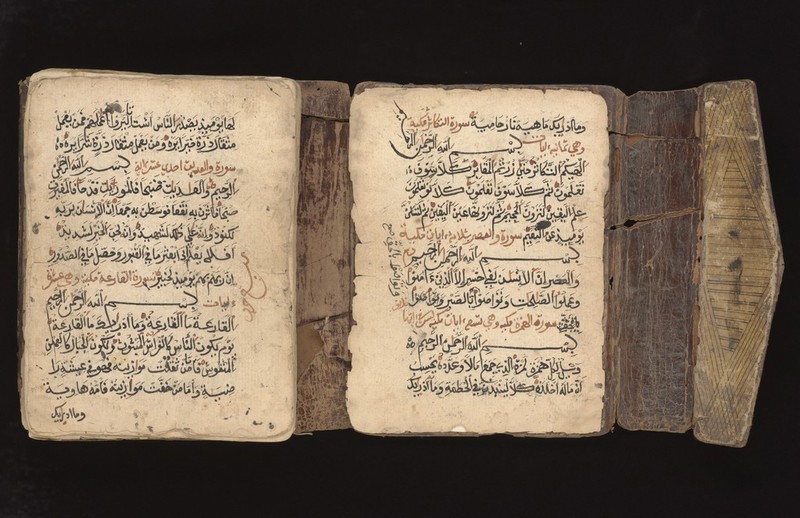 يومئذ يصدر الناس اشتاتا ليروا اعملهم فمن يعمل
مثقال ذرة خيرا يره ومن يعمل مثقال ذرة شرا يره
سورة والعديت احدى عشر اية بسم الله الرحمن
الرحيم والعديت ضبحا فالموريت قدحا فالمغيرت
صبحا فاثرن به نقعا فوسطن به جمعا ان الانسان لربه
لكنود وانه على ذلك لشهيد وانه لحب الخير لشديد
افلا يعلم اذا بعثر ما في القبور وحصل ما في الصدور
ان ربهم بهم يومئذ لخبير سورة القارعة مكية وهي عشر
ءايات بسم الله الرحمن الرحيم
القارعة ما القارعة وما ادريك ما القارعة
يوم يكون الناس كالفراش المبثوث وتكون الجبال كالعهن
المنفوش فاما من ثقلت موازينه فهو في عيشة را
ضية واما من خفت موازينه فامه هاوية
وما ادريك
وما ادريك ماهيه نار حامية سورة التكاثر مكية
وهي ثمانية ايات بسم الله الرحمن الرحيم
الهيكم التكاثر حتى زرتم المقابر كلا سوف
تعلمون ثم كلا سوف تعلمون كلا لو تعلمون
علم اليقين لترون الجحيم ثم لترونها عين اليقين ثم لتسئلن
يومئذ عن النعيم سورة والعصر ثلاث ايات مكية
بسم الله الرحمن الرحيم
والعصر ان الانسن لفي خسر الا الذين ءامنوا
وعملوا الصلحت وتواصوا بالحق وتواصوا بالصبر
سورة الهمزة مكية وهي تسع ايات
بسم الله الرحمن الرحيم
ويل لكل همزة لمزة الذي جمع مالا وعدده يحسب
ان ماله اخلده كلا لينبذن في الحطمة وما ادريك